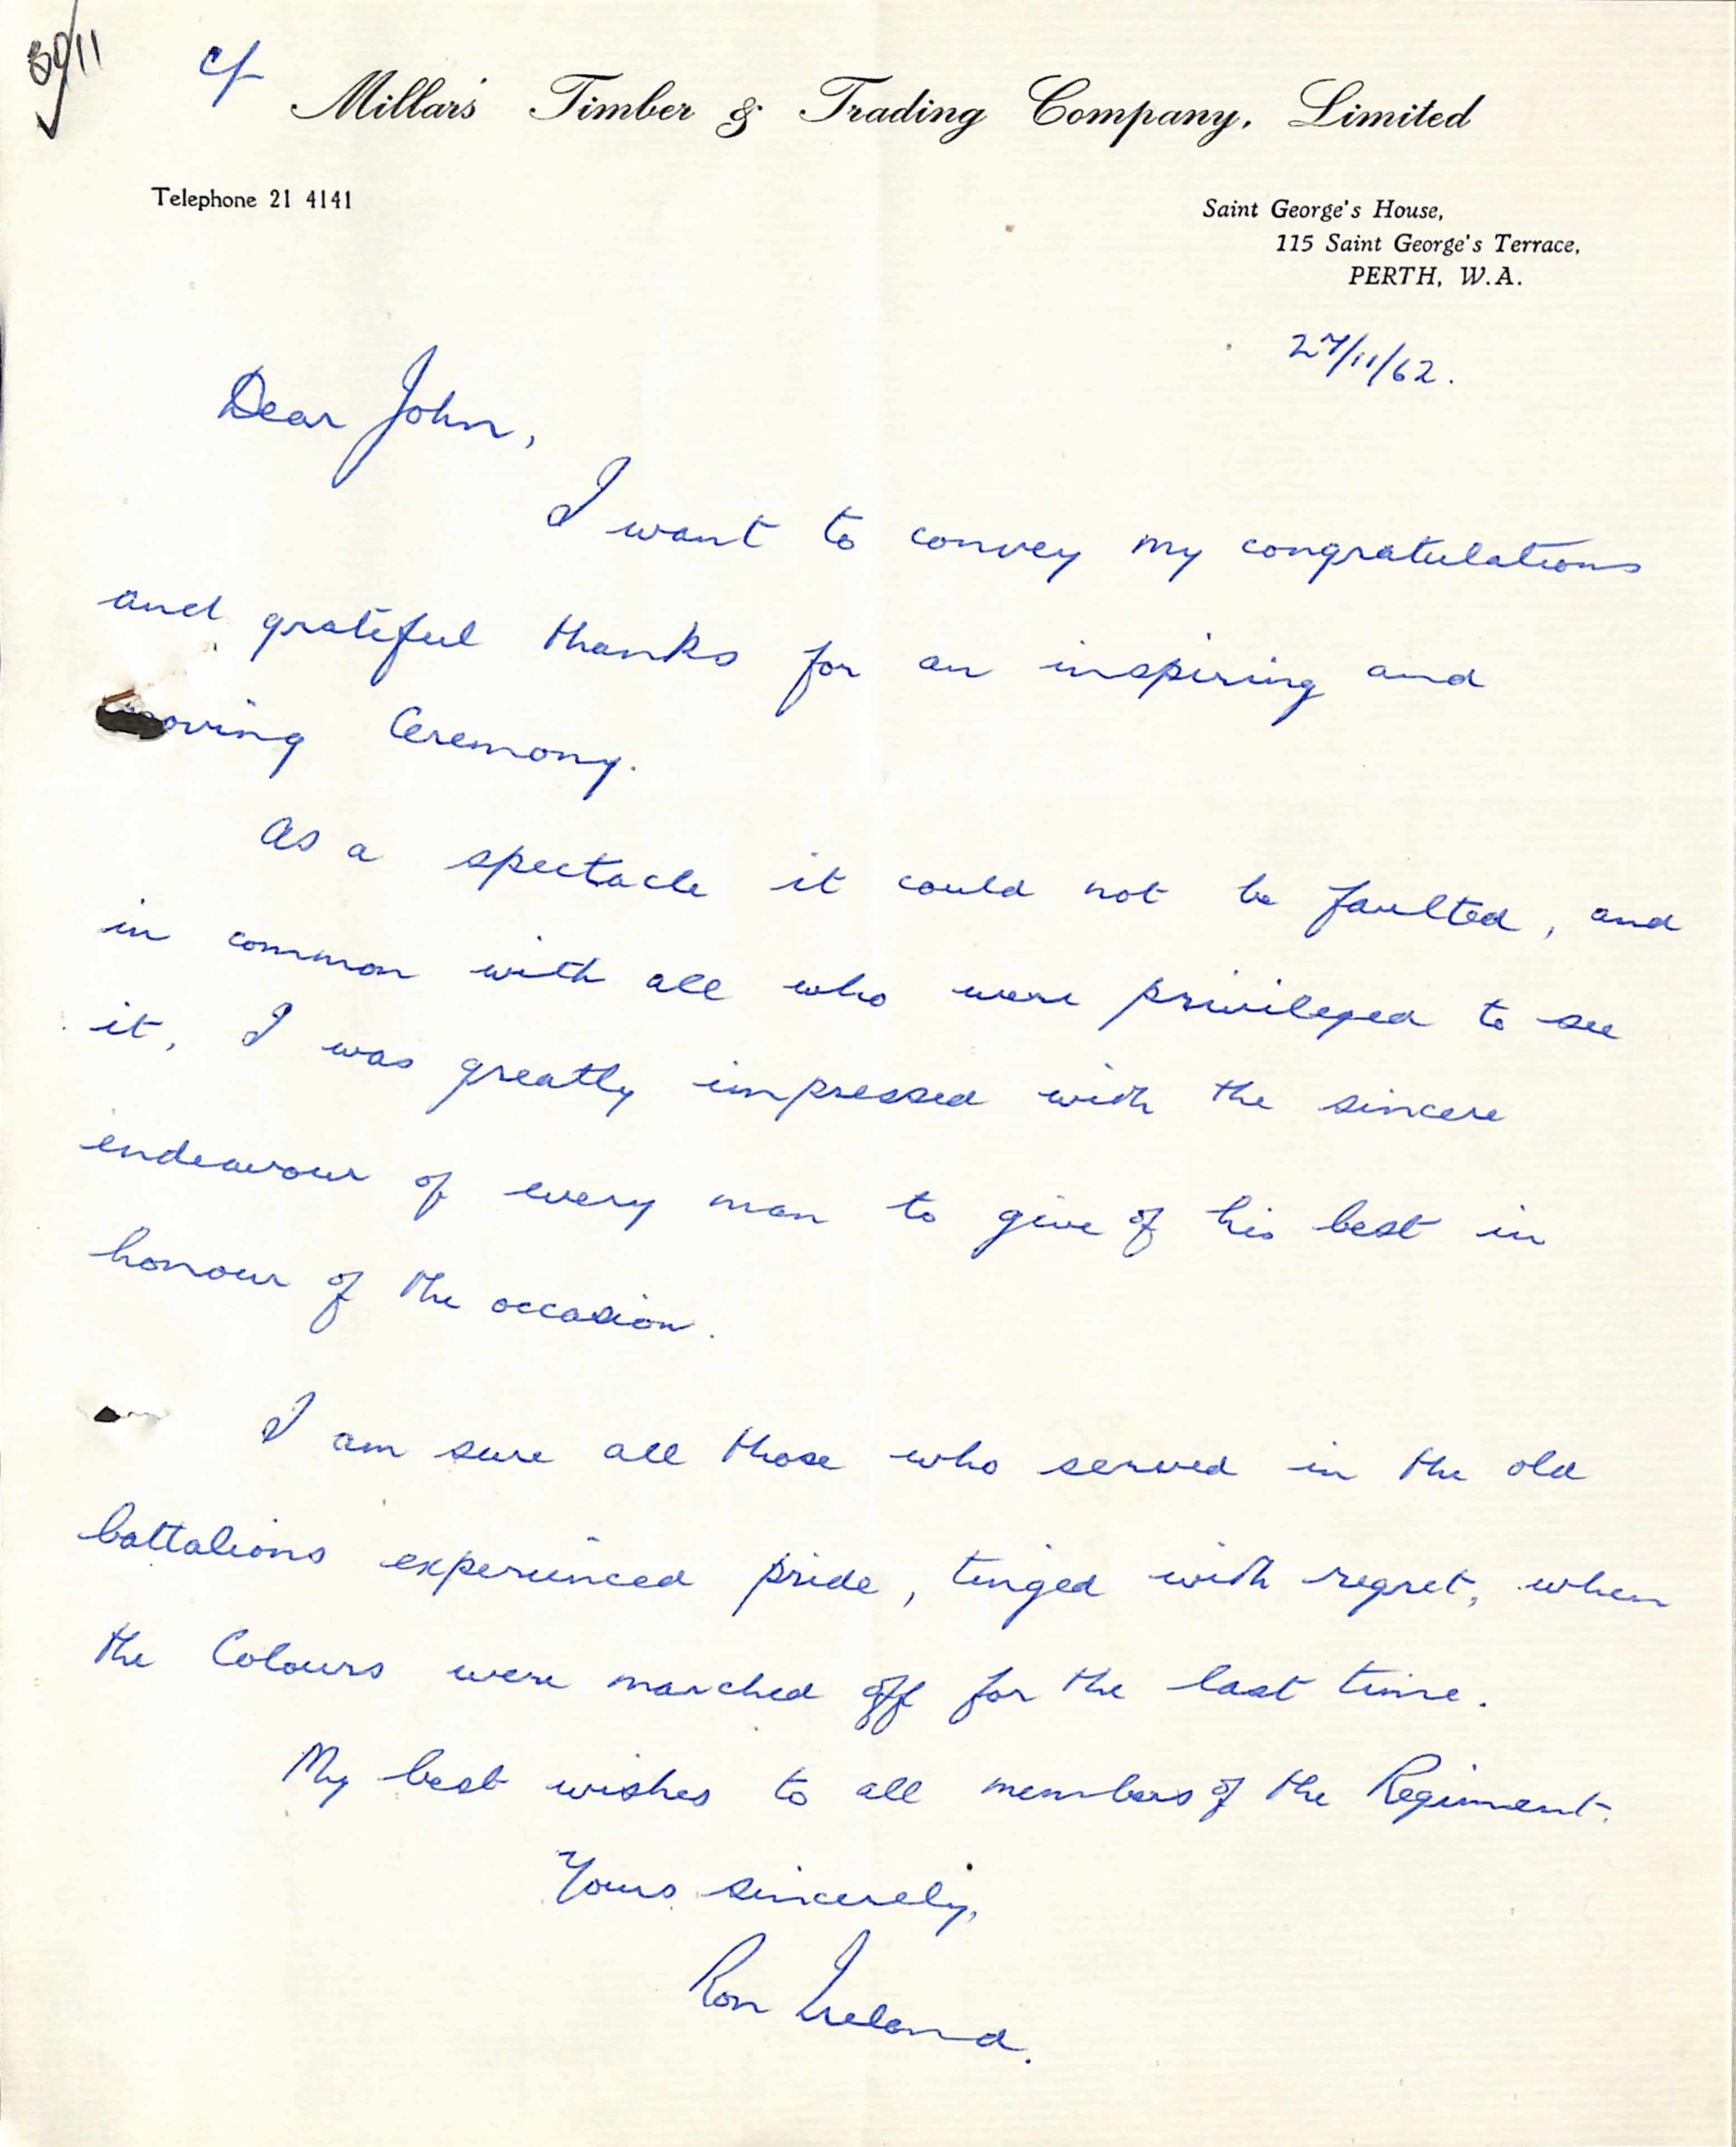 30/11
c/-
Millars' Timber & Trading Company, Limited
Telephone 21 4141
Saint George's House,
115 Saint George's Terrace,
PERTH, W.A.
27/11/62.
Dear John,
I want to convey my congratulations
and grateful thanks for an inspiring and
moving Ceremony.
As a spectacle it could not be faulted, and
in common with all who were privileged to see
it, I was greatly impressed with the sincere
endeavour of every man to give of his best in
honour of the occasion.
I am sure all those who served in the old
battalions experienced pride, tinged with regret, when
the Colours were marched off for the last time.
My best wishes to all members of the Regiment.
Yours sincerely,
Ron Ireland.